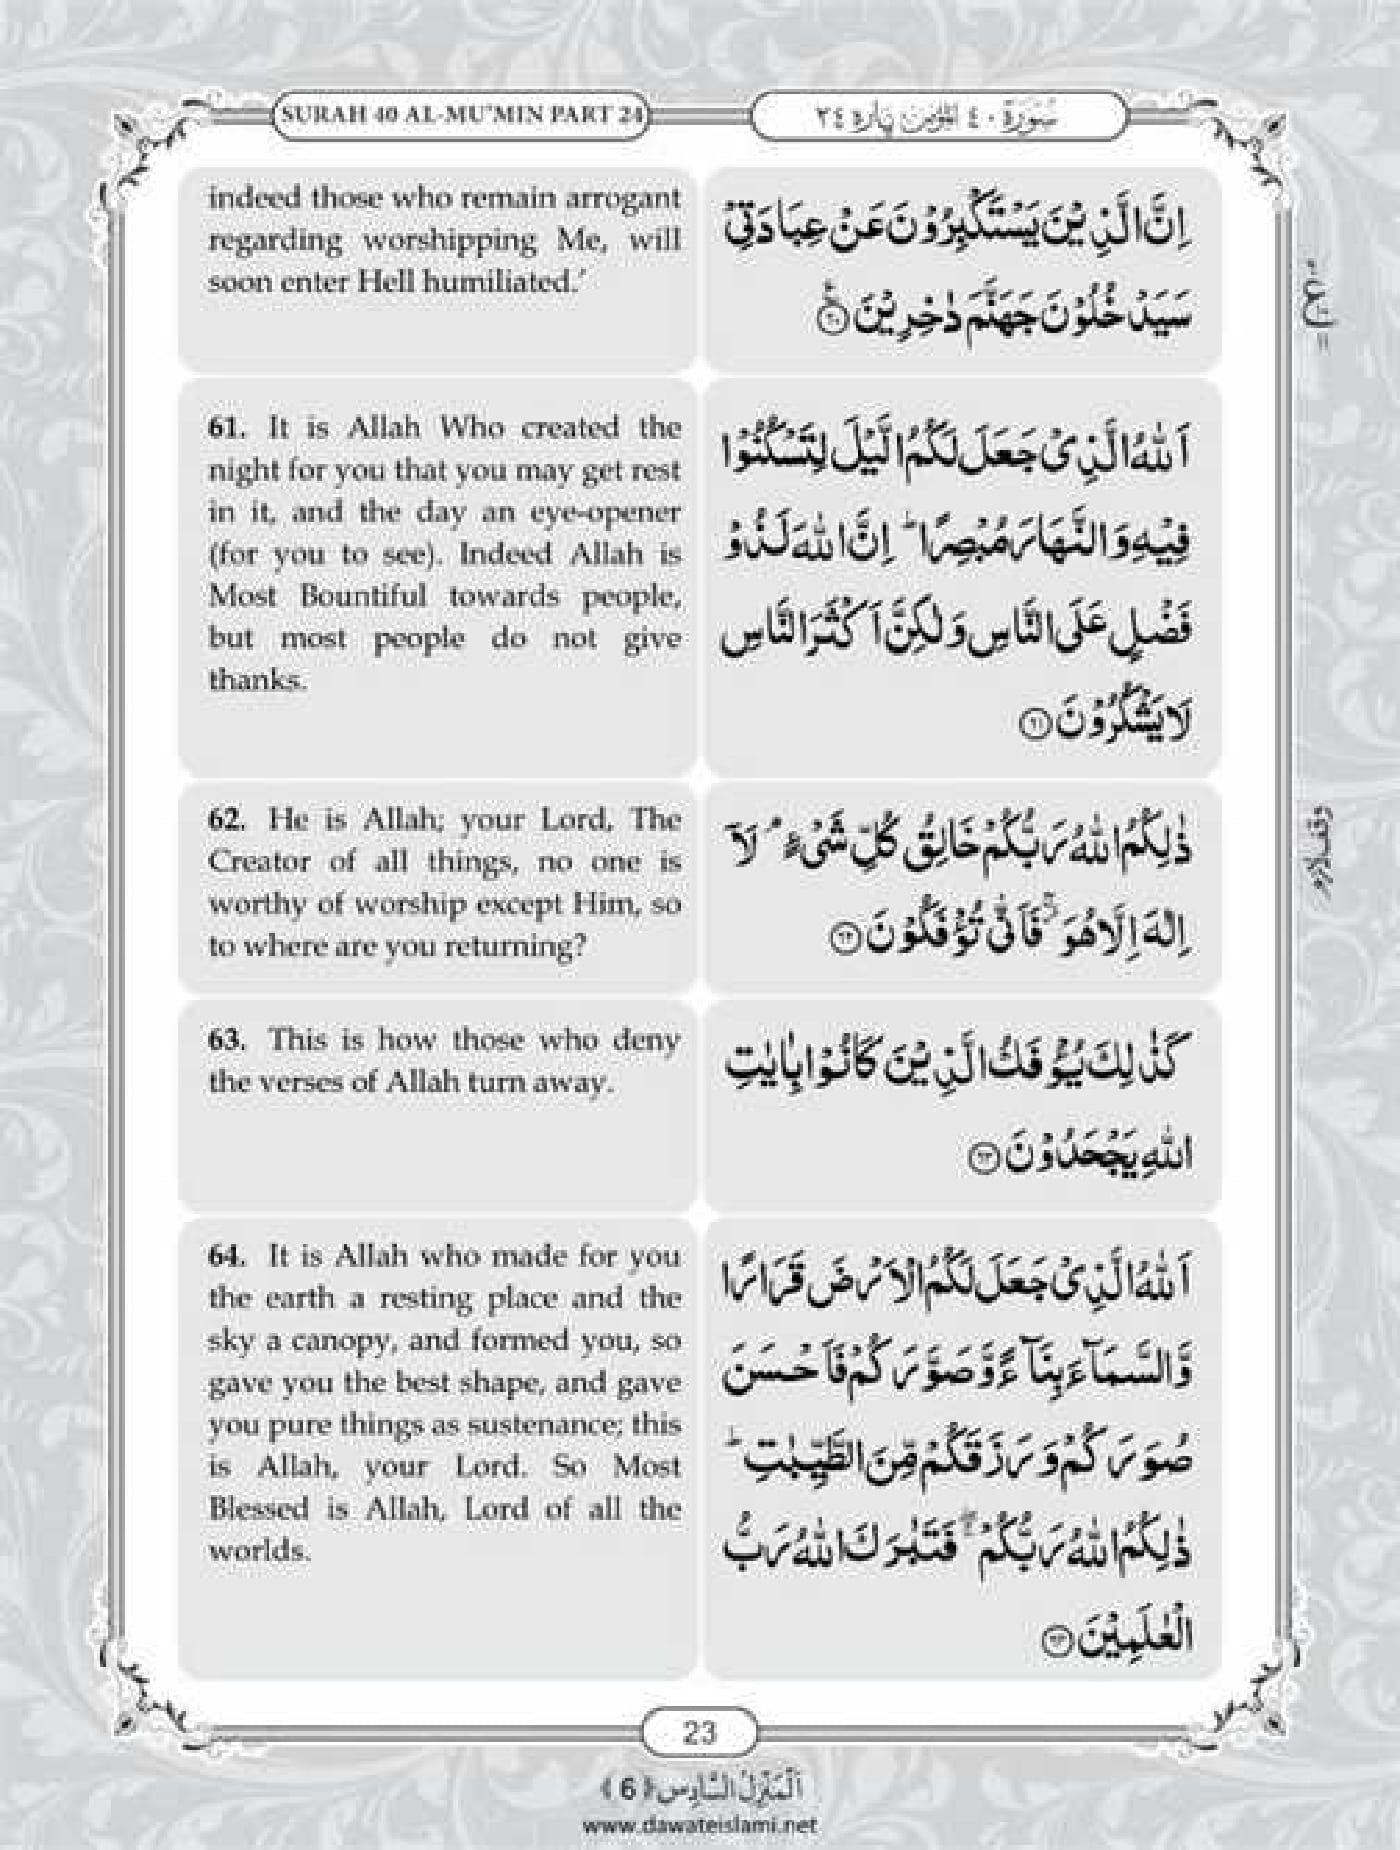 SURAH 40 AL-MU'MIN PART 24
سُوْرَة ٤٠ اَلْمُؤْمِن پَارہ ٢٤
indeed those who remain arrogant
regarding worshipping Me, will
soon enter Hell humiliated.’
اِنَّ الَّذِیْنَ یَسْتَكْبِرُوْنَ عَنْ عِبَادَتِیْ
سَیَدْخُلُوْنَ جَهَنَّمَ دٰخِرِیْنَ ﴿۶۰﴾
61. It is Allah Who created the
night for you that you may get rest
in it, and the day an eye-opener
(for you to see). Indeed Allah is
Most Bountiful towards people,
but most people do not give
thanks.
اَللّٰهُ الَّذِیْ جَعَلَ لَكُمُ الَّیْلَ لِتَسْكُنُوْا
فِیْهِ وَ النَّهَارَ مُبْصِرًا ؕ اِنَّ اللّٰهَ لَذُوْ
فَضْلٍ عَلَی النَّاسِ وَ لٰكِنَّ اَكْثَرَ النَّاسِ
لَا یَشْكُرُوْنَ ﴿۶۱﴾
62. He is Allah; your Lord, The
Creator of all things, no one is
worthy of worship except Him, so
to where are you returning?
ذٰلِكُمُ اللّٰهُ رَبُّكُمْ خَالِقُ كُلِّ شَیْءٍ ۘ لَاۤ
اِلٰهَ اِلَّا هُوَ ۫ۚ فَاَنّٰی تُؤْفَكُوْنَ ﴿۶۲﴾
63. This is how those who deny
the verses of Allah turn away.
كَذٰلِكَ یُؤْفَكُ الَّذِیْنَ كَانُوْا بِاٰیٰتِ
اللّٰهِ یَجْحَدُوْنَ ﴿۶۳﴾
64. It is Allah who made for you
the earth a resting place and the
sky a canopy, and formed you, so
gave you the best shape, and gave
you pure things as sustenance; this
is Allah, your Lord. So Most
Blessed is Allah, Lord of all the
worlds.
اَللّٰهُ الَّذِیْ جَعَلَ لَكُمُ الْاَرْضَ قَرَارًا
وَّ السَّمَآءَ بِنَآءً وَّ صَوَّرَكُمْ فَاَحْسَنَ
صُوَرَكُمْ وَ رَزَقَكُمْ مِّنَ الطَّیِّبٰتِ ؕ
ذٰلِكُمُ اللّٰهُ رَبُّكُمْ ۖۚ فَتَبٰرَكَ اللّٰهُ رَبُّ
الْعٰلَمِیْنَ ﴿۶۴﴾
وقف لازم
23
اَلْمَنْزِلُ السَّادِس ﴿6﴾
www.dawateislami.net